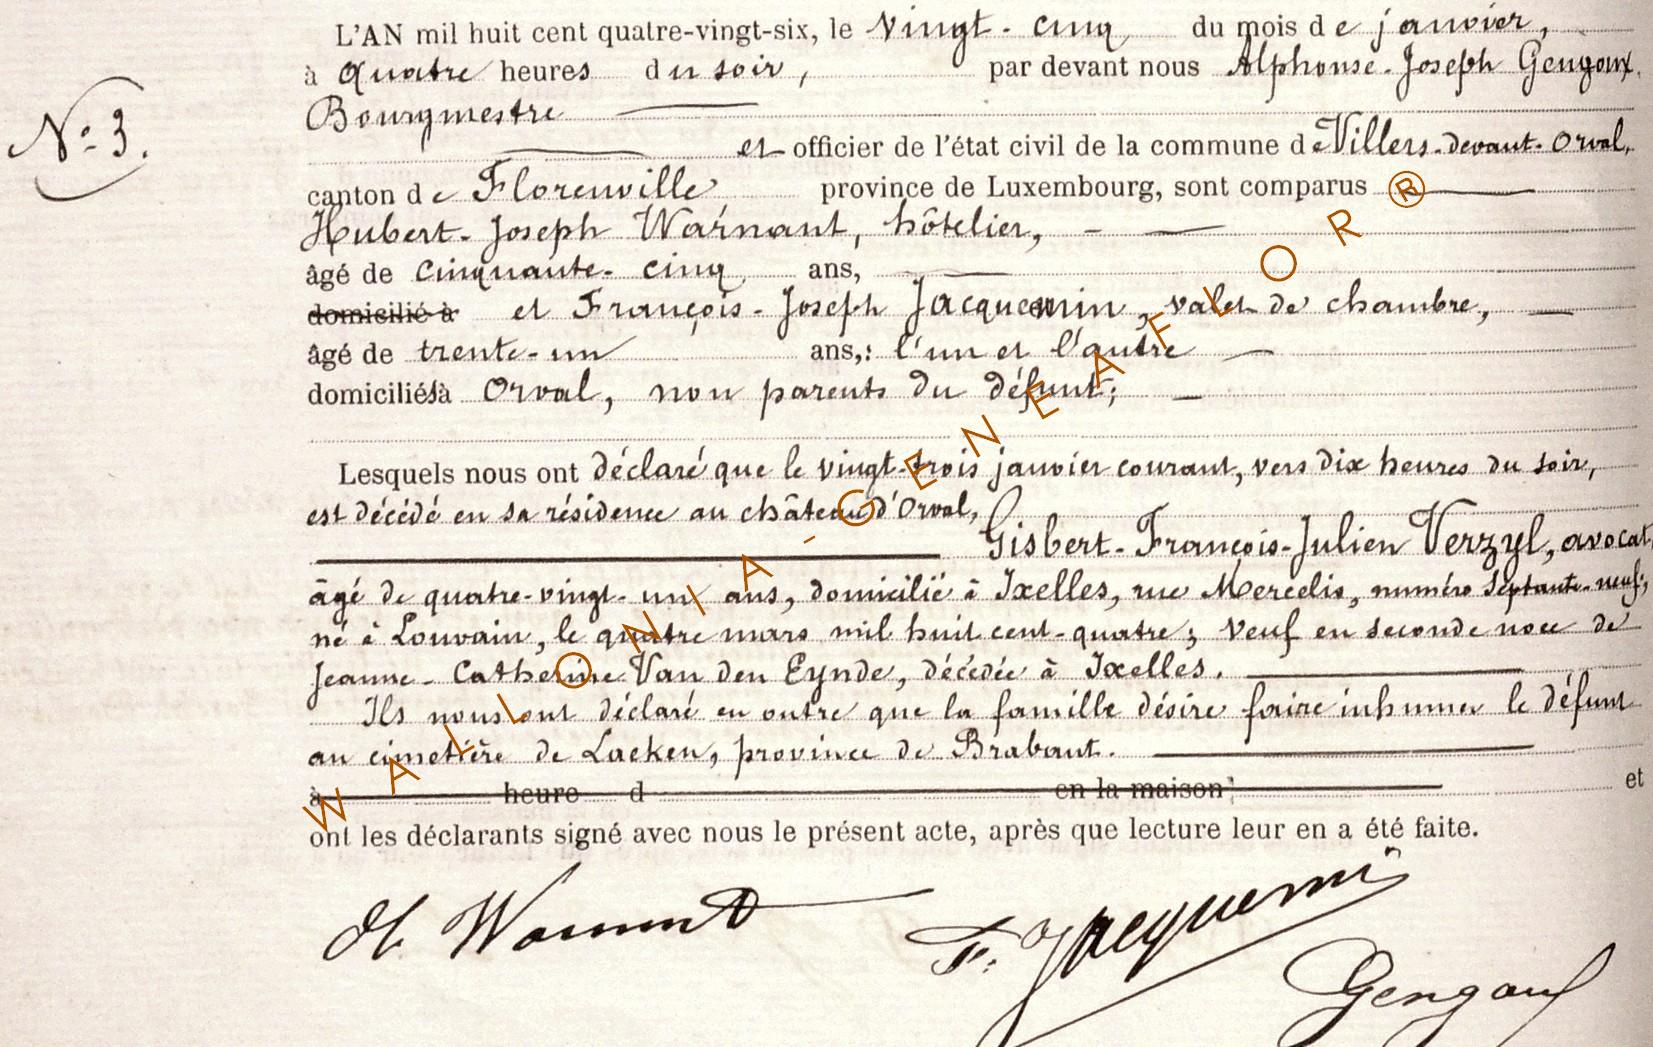 L'AN mil huit cent quatre-vingt-six, le vingt-cinq du mois de janvier,
à quatre heures du soir, par devant nous Alphonse-Joseph Gengoux,
Bourgmestre
N° 3.
et officier de l'état civil de la commune de Villers-devant-Orval,
canton de Florenville province de Luxembourg, sont comparus
Hubert-Joseph Warnant, hôtelier,
âgé de cinquante-cinq ans,
domicilié à et François-Joseph Jacquemin, valet de chambre,
âgé de trente-un ans,: l'un et l'autre
domiciliés à Orval, non parents du défunt;
Lesquels nous ont déclaré que le vingt-trois janvier courant, vers dix heures du soir,
est décédé en sa résidence au château d'Orval,
Gisbert-François-Julien Verzyl, avocat,
âgé de quatre-vingt-un ans, domicilié à Ixelles, rue Mercelis, numéro septante-neuf,
né à Louvain, le quatre mars mil huit cent-quatre; veuf en seconde noce de
Jeanne-Catherine Van den Eynde, décédée à Ixelles.
Ils nous ont déclaré en outre que la famille désire faire inhumer le défunt
au cimetière de Laeken, province de Brabant.
à heure d en la maison et
ont les déclarants signé avec nous le présent acte, après que lecture leur en a été faite.
H. Warnant
F. Jacquemin
Gengoux
WALLONIA - GENEAFLOR ®